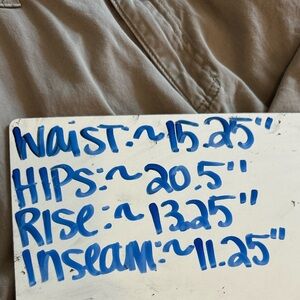 Waist:~15.25"
HIPS:~20.5"
RISe:~13.25"
Inseam:~11.25"